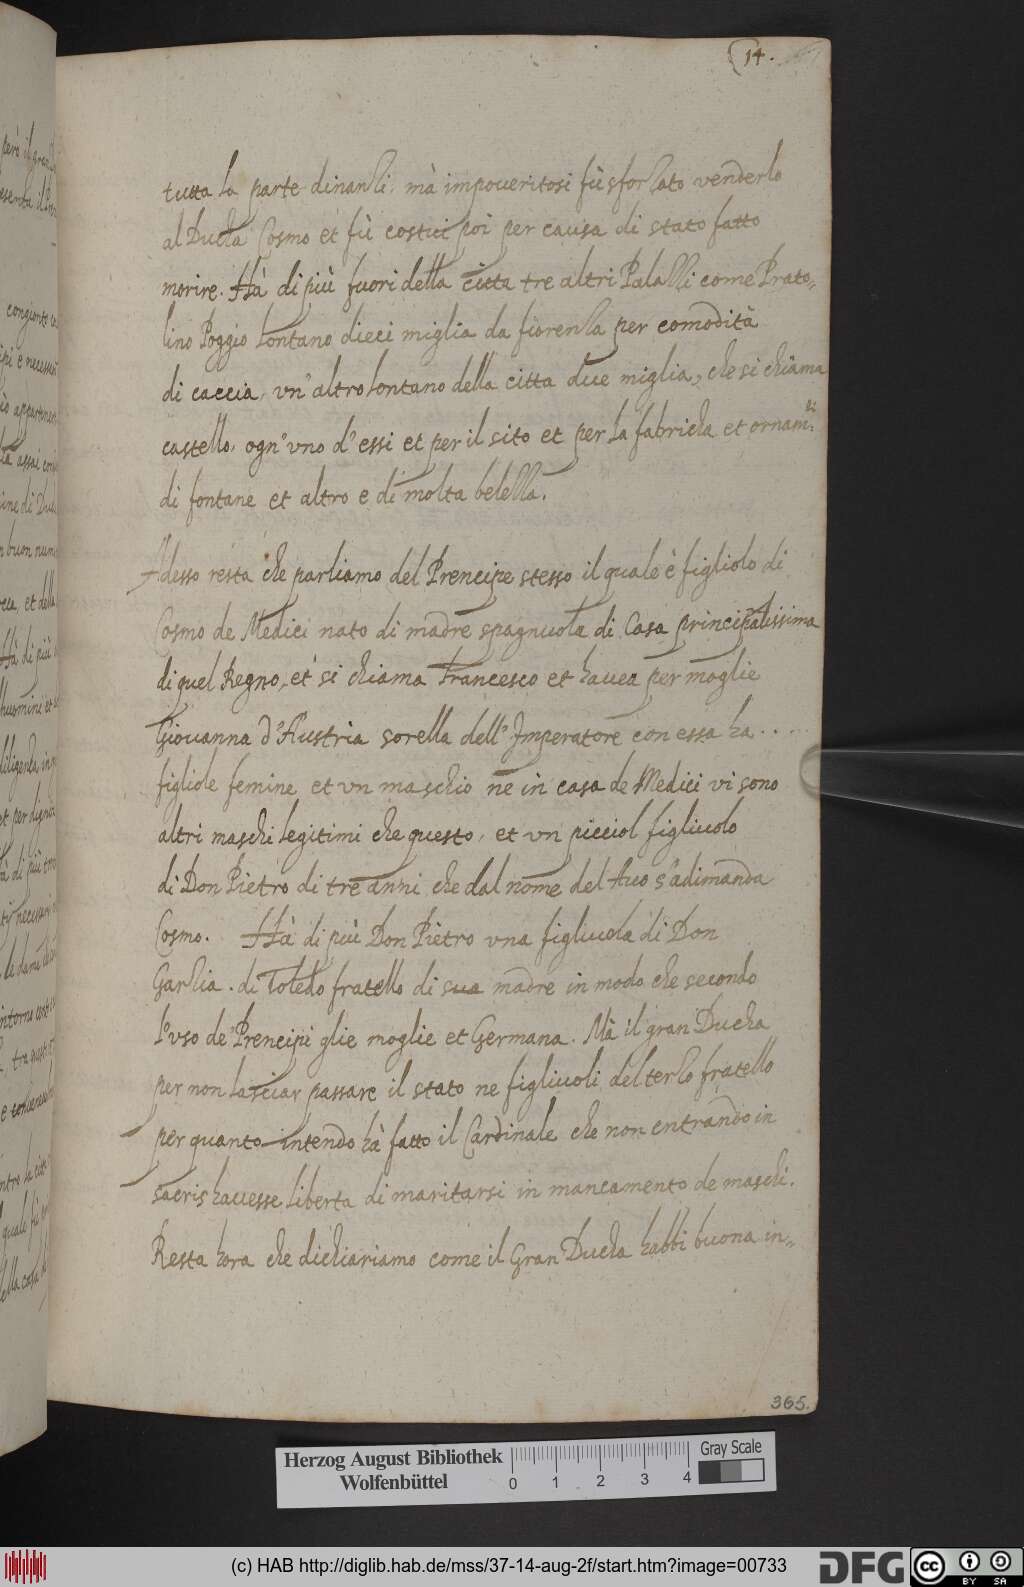 14.
tutta la parte dinanzi, mà impoueritosi fù sforzato venderlo
al Ducha Cosmo et fù costui poi per causa di stato fatto
morire. Hà di più fuori della citta tre altri Palazzi come Prato-
lino Poggio lontano dieci miglia da fiorenza per comodità
di caccia, vn' altro lontano della citta due miglia, che si chiama
castello, ogn' vno d' essi et per il sito et per la fabricha et ornam.ti
di fontane et altro e di molta belezza.
Adesso resta che parliamo del Prencipe stesso il quale è figliolo di
Cosmo de Medici nato di madre spagnuola di Casa principalissima
di quel Regno, et si chiama Francesco et hauea per moglie
Giouanna d'Austria sorella dell' Imperatore con essa ha . . . .
figliole femine et vn maschio ne in casa de Medici vi sono
altri maschi legitimi che questo, et vn picciol figliuolo
di Don Pietro di tre anni che dal nome del Auo s'adimanda
Cosmo. Hà di più Don Pietro vna figliuola di Don
Garzia di Toledo fratello di sua madre in modo che secondo
l'vso de' Prencipi glie moglie et Germana. Mà il gran Ducha
per non lasciar passare il stato ne figliuoli del terzo fratello
per quanto intendo hà fatto il Cardinale che non entrando in
sacris hauesse liberta di maritarsi in mancamento de maschi.
Resta hora che dichiariamo come il Gran Ducha habbi buona in-
365.
Herzog August Bibliothek
Wolfenbüttel
0 1 2 3 4
Gray Scale
(c) HAB http://diglib.hab.de/mss/37-14-aug-2f/start.htm?image=00733
DFG
cc BY SA